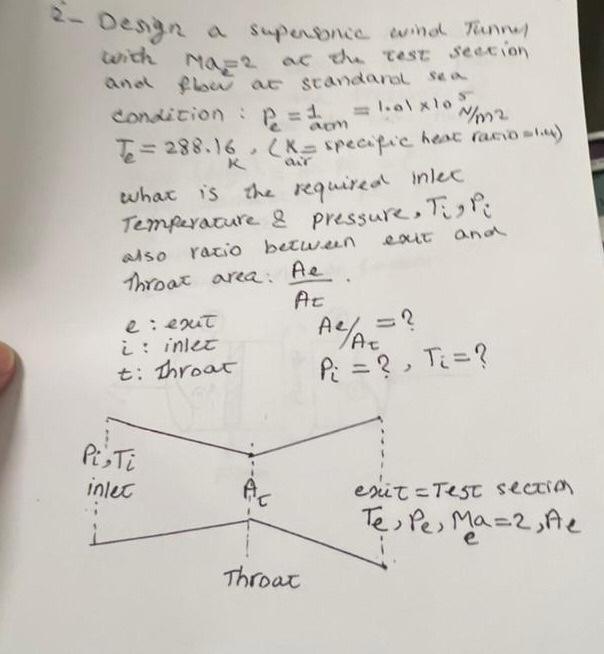 2- Design a supersonic wind Tunnel
with Ma_e=2 at the test section
and flow at standard sea
condition : P_e = 1 atm = 1.01 × 10^5 N/m2
T_e = 288.16 K , (K_air = specific heat ratio = 1.4)
what is the required inlet
Temperature & pressure, Ti, Pi
also ratio between exit and
Throat area: Ae/At .
e : exit
i : inlet
t : throat
Ae/At = ?
Pi = ? , Ti = ?
Pi, Ti
inlet
At
exit = Test section
Te, Pe, Ma_e = 2, Ae
Throat